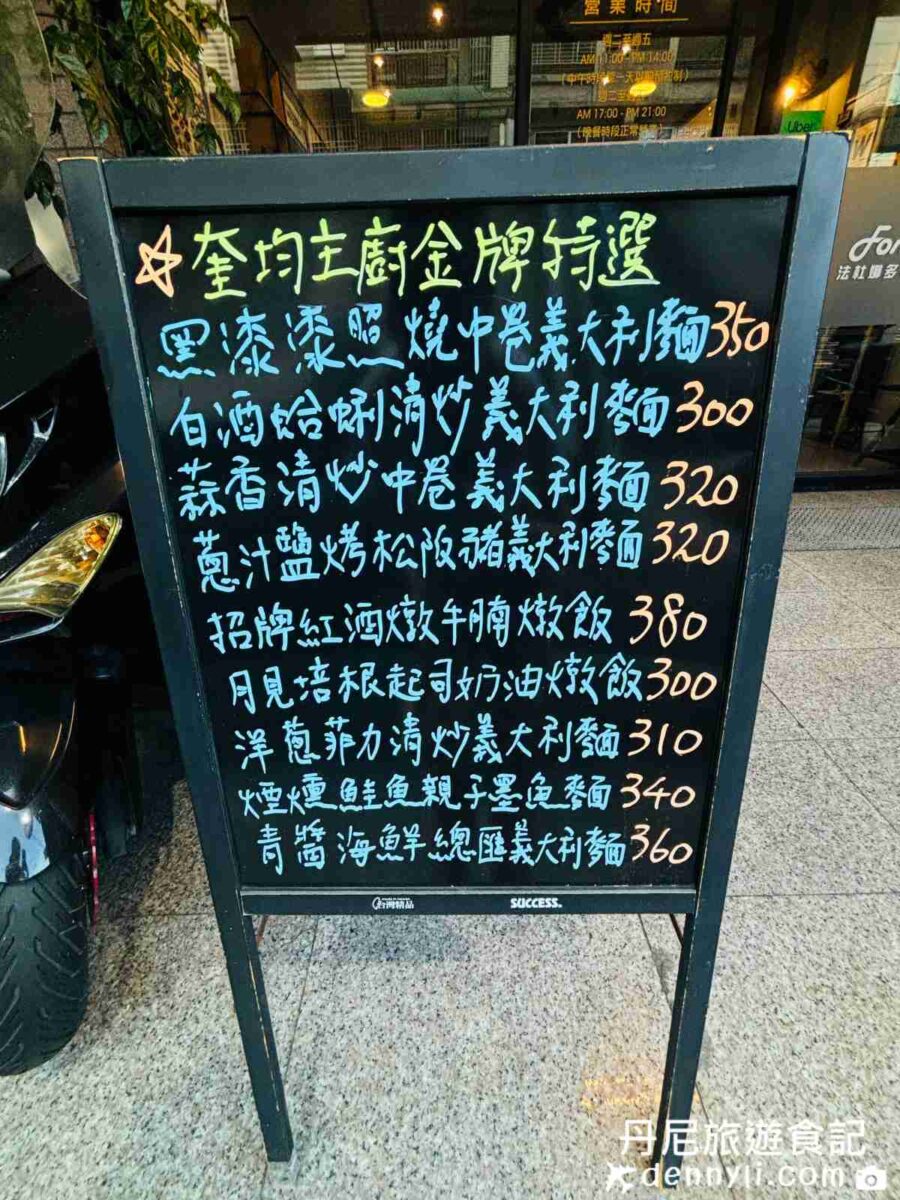 營業時間
週二至週五
AM 11:00 - PM 14:00
AM 17:00 - PM 21:00
Uber
For
法社娜多
☆奎均主廚金牌特選
黑漆漆照燒中卷義大利麵350
白酒蛤蜊清炒義大利麵300
蒜香清炒中卷義大利麵320
蔥汁鹽烤松阪豬義大利麵320
招牌紅酒燉牛腩燉飯 380
月見培根起司奶油燉飯300
洋蔥菲力清炒義大利麵310
煙燻鮭魚親子墨魚麵340
青醬海鮮總匯義大利麵360
台灣精品
SUCCESS.
丹尼旅遊食記
dennyli.com